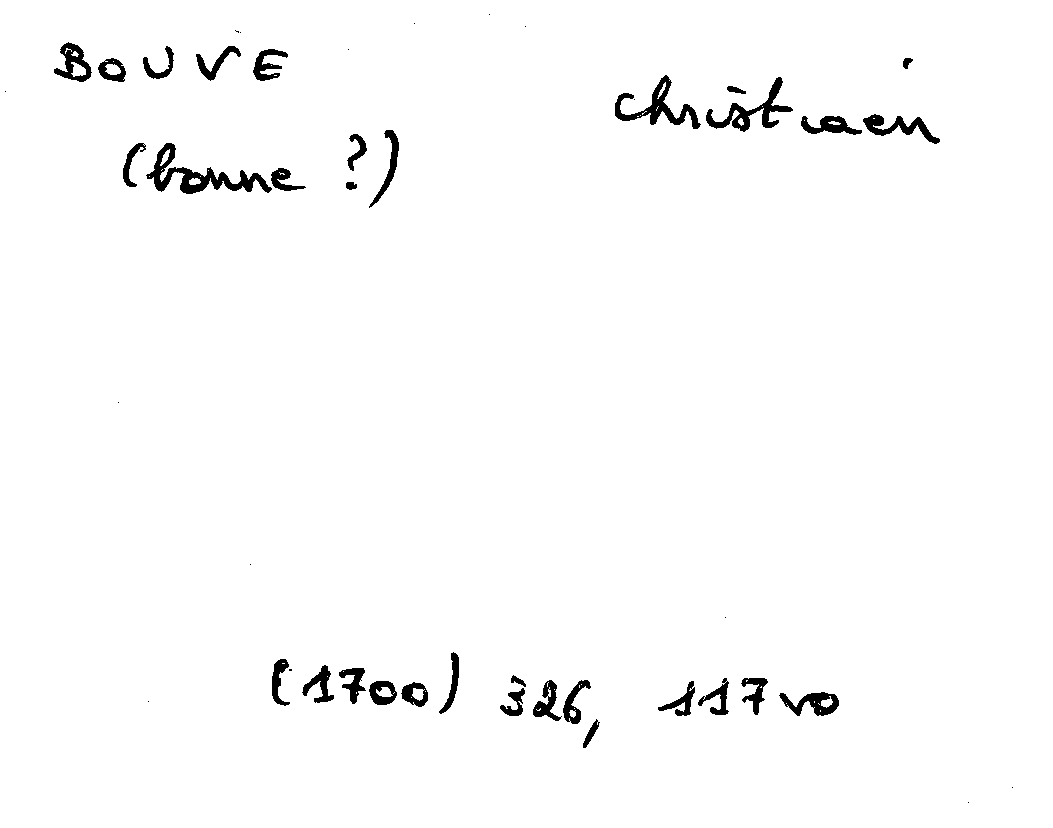 BOUVE christiaen
(bonne ?)
(1700) 326, 117vo